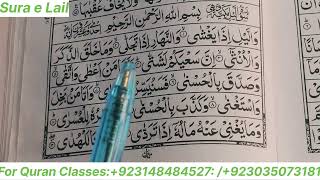 Sura e Lail
بِسْمِ اللّٰهِ الرَّحْمٰنِ الرَّحِيْمِ
وَالَّيْلِ اِذَا يَغْشٰى وَالنَّهَارِ اِذَا تَجَلّٰى وَمَا خَلَقَ الذَّكَرَ
وَالْاُنْثٰى اِنَّ سَعْيَكُمْ لَشَتّٰى فَاَمَّا مَنْ اَعْطٰى وَاتَّقٰى
وَصَدَّقَ بِالْحُسْنٰى فَسَنُيَسِّرُهٗ وَاَمَّا مَنْ بَخِلَ
وَاسْتَغْنٰى وَكَذَّبَ بِالْحُسْنٰى لِلْعُسْرٰى
وَمَا يُغْنِيْ عَنْهُ مَالُهٗ اِذَا تَرَدّٰى لَلْهُدٰى
For Quran Classes:+923148484527: /+923035073181